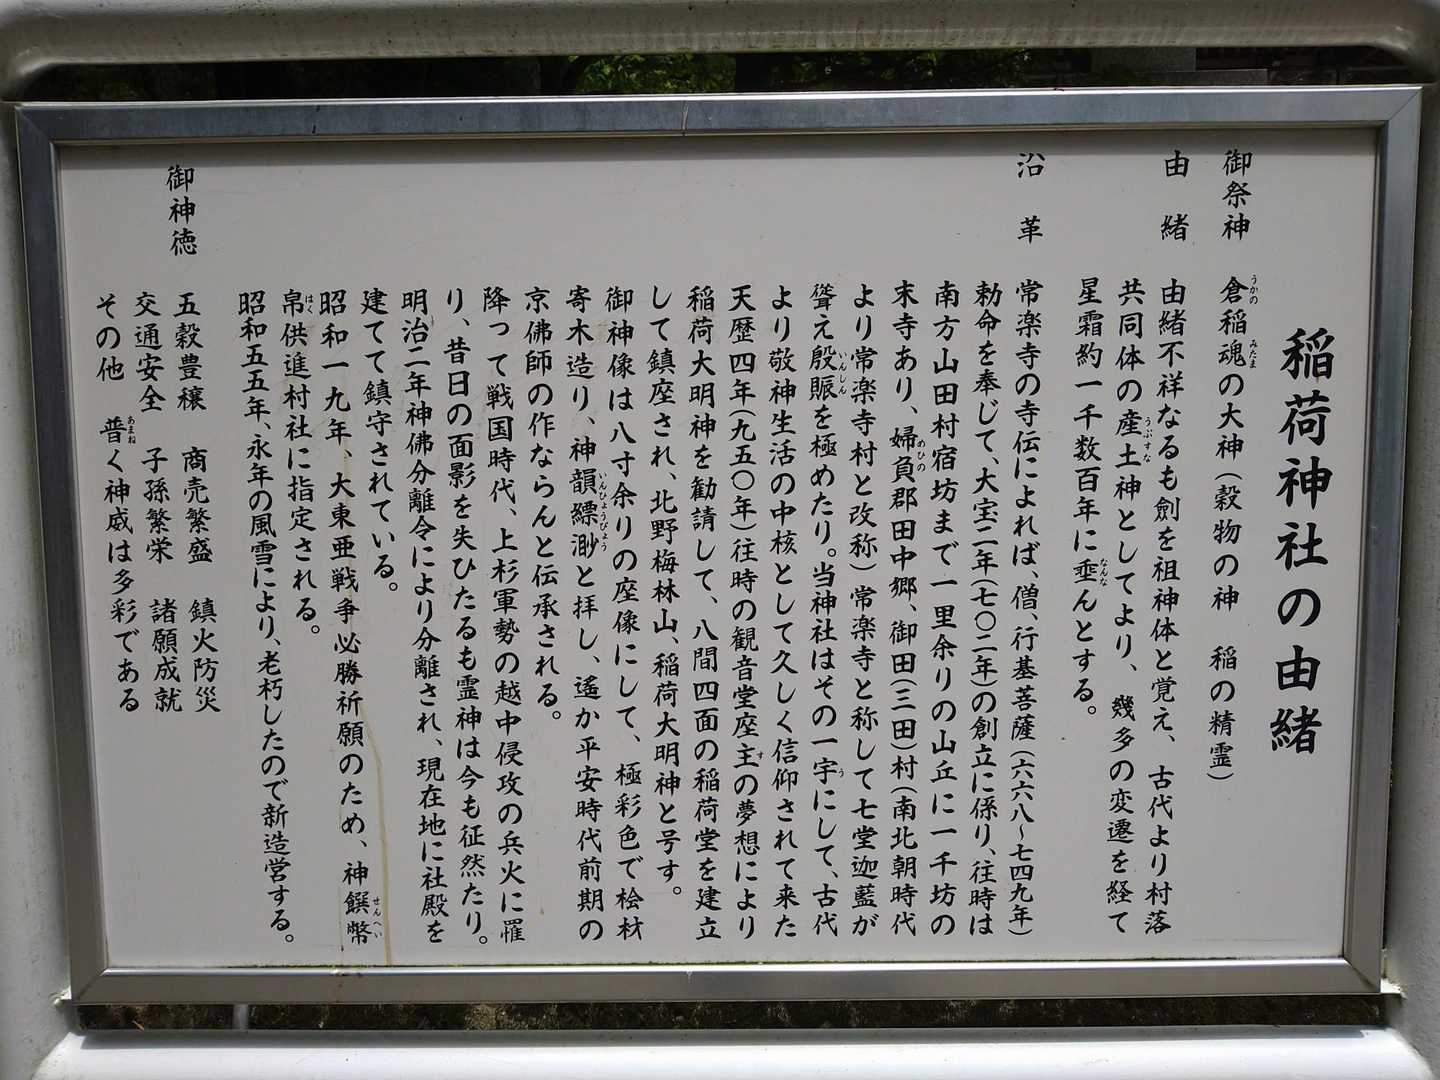 稲荷神社の由緒
御祭神　倉稲魂の大神（穀物の神　稲の精霊）
由緒　由緒不祥なるも劍を祖神体と覚え、古代より村落
共同体の産土神としてより、幾多の変遷を経て
星霜約一千数百年に埀んとする。
沿革　常楽寺の寺伝によれば、僧、行基菩薩（六六八～七四九年）
勅命を奉じて、大宝二年（七〇二年）の創立に係り、往時は
南方山田村宿坊まで一里余りの山丘に一千坊の
末寺あり、婦負郡田中郷、御田（三田）村（南北朝時代
より常楽寺村と改称）常楽寺と称して七堂迦藍が
聳え殷賑を極めたり。当神社はその一宇にして、古代
より敬神生活の中核として久しく信仰されて来た
天歴四年（九五〇年）往時の観音堂座主の夢想により
稲荷大明神を勧請して、八間四面の稲荷堂を建立
して鎮座され、北野梅林山、稲荷大明神と号す。
御神像は八寸余りの座像にして、極彩色で桧材
寄木造り、神韻縹渺と拝し、遙か平安時代前期の
京佛師の作ならんと伝承される。
降って戦国時代、上杉軍勢の越中侵攻の兵火に罹
り、昔日の面影を失ひたるも霊神は今も征然たり。
明治二年神佛分離令により分離され、現在地に社殿を
建てて鎮守されている。
昭和一九年、大東亜戦争必勝祈願のため、神饌幣
帛供進村社に指定される。
昭和五五年、永年の風雪により、老朽したので新造営する。
御神徳　五穀豊穣　商売繁盛　鎮火防災
交通安全　子孫繁栄　諸願成就
その他　普く神威は多彩である